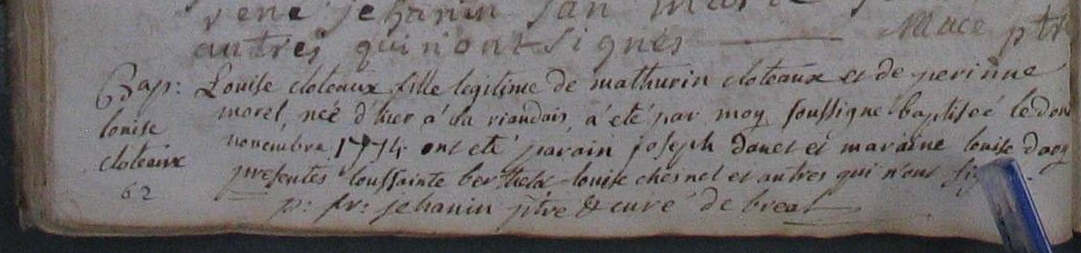 rene jehanin jan
autres qui n'ont signés Macé ptre
Bap: Louise cloteaux fille legitime de mathurin cloteaux et de perinne
louise morel, neé d'hier à la riandais, a été par moy soussigne baptiseé le
cloteaux novembre 1774 ont été parain joseph danet et maraine louise
62 presentes toussainte berthelx louise chesnel et autres qui n'ont
p: fr: jehanin ptre & curé de breal